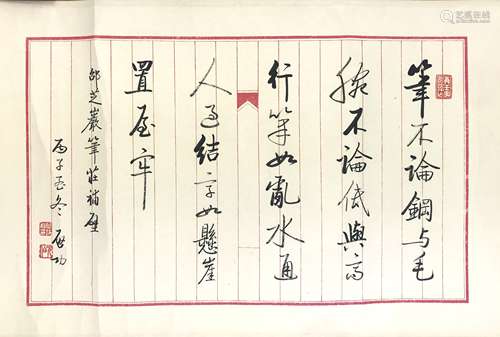 筆不論鋼与毛
腕不論低與高
行筆如亂水通
人過结字如懸崖
置屋牢
邵芝巖筆莊補壁
丙子孟冬 启功
艺狐在线